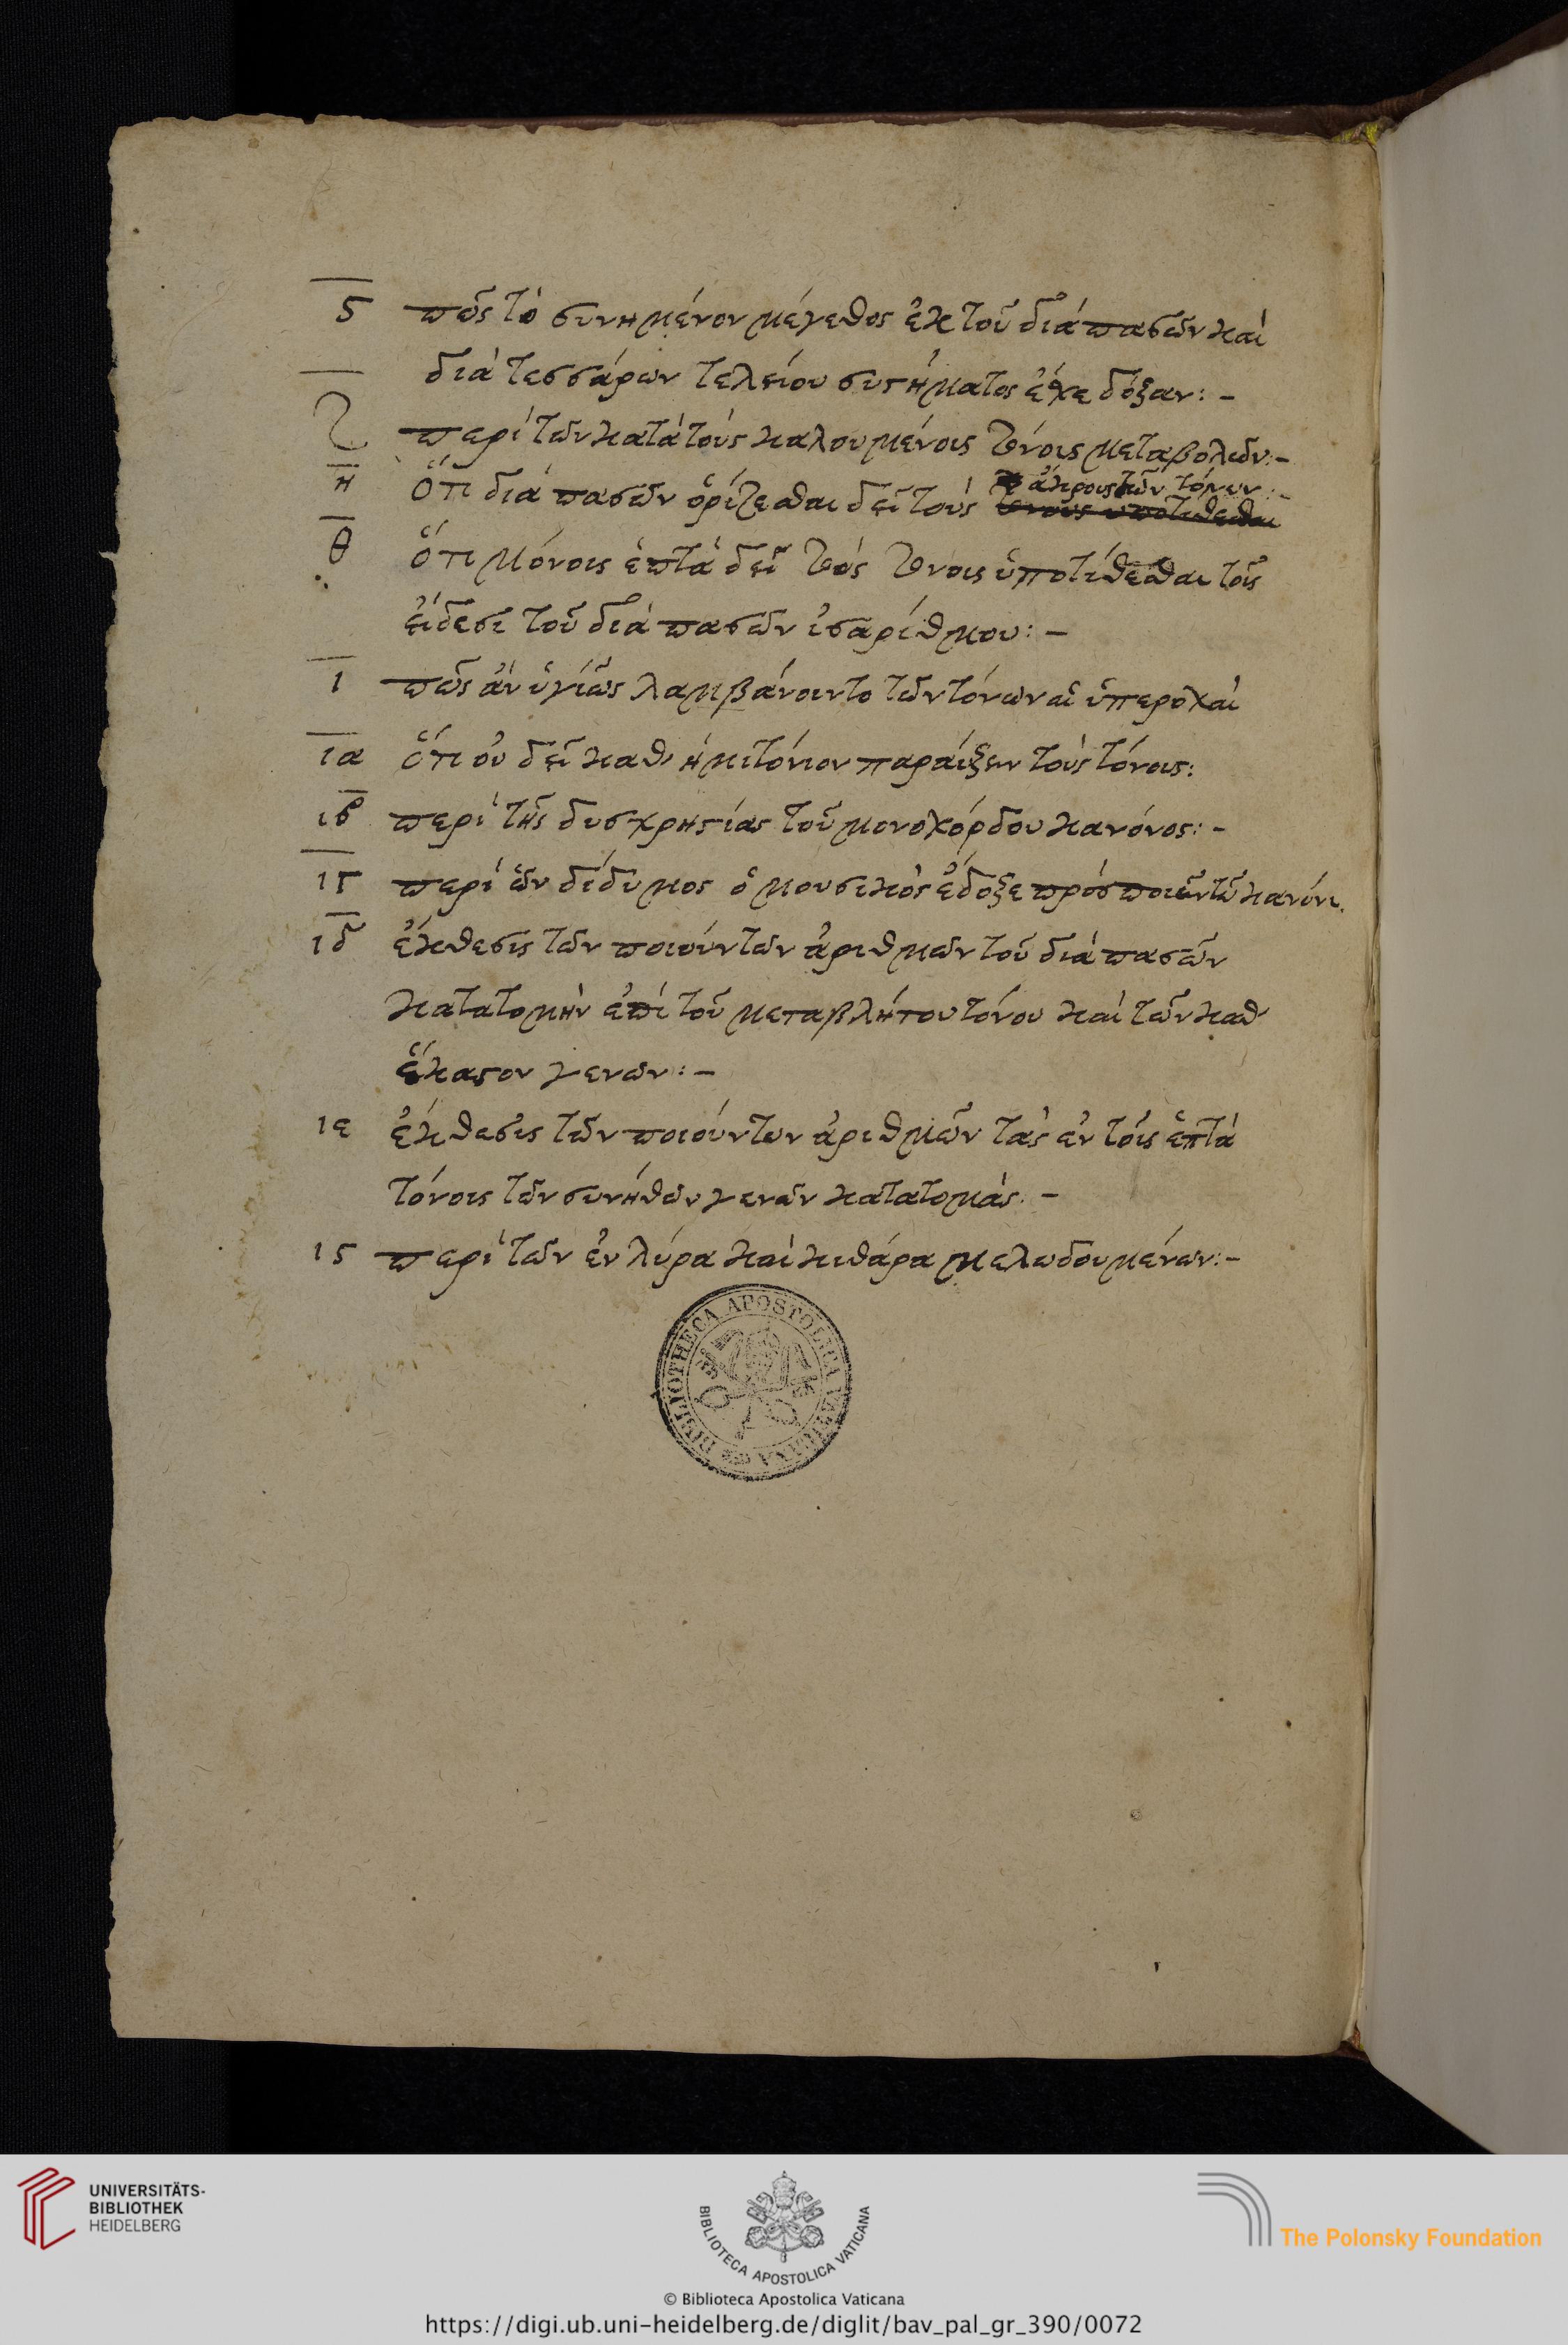 ϛ πῶς τὸ συνημμένον μέγεθος ἐκ τοῦ διὰ πασῶν καὶ
διὰ τεσσάρων τελείου συστήματος ἔσχε δόξαν:-
ζ περὶ τῶν κατὰ τοὺς καλουμένους τόνους μεταβολῶν:-
ἄκρους τῶν τόνων:-
η ὅτι διὰ πασῶν ὁρίζεσθαι δεῖ τοὺς τόνους ὑποτίθεσθαι
θ ὅτι μόνους ἑπτὰ δεῖ τοὺς τόνους ὑποτίθεσθαι τοῖς
εἴδεσι τοῦ διὰ πασῶν ἰσαρίθμου:-
ι πῶς ἂν ὑγιῶς λαμβάνοιντο τῶν τόνων αἱ ὑπεροχαὶ
ια ὅτι οὐ δεῖ καθ' ἡμιτόνιον παραύξειν τοὺς τόνους:
ιβ περὶ τῆς δυσχρηστίας τοῦ μονοχόρδου κανόνος:-
ιγ περὶ ὧν δίδυμος ὁ μουσικὸς ἔδοξε προσποιεῖν τῷ κανόνι.
ιδ ἔκθεσις τῶν ποιούντων ἀριθμῶν τοῦ διὰ πασῶν
κατατομὴν ἐπὶ τοῦ μεταβλήτου τόνου καὶ τῶν καθ'
ἕκαστον γενῶν:-
ιε ἔκθεσις τῶν ποιούντων ἀριθμῶν τὰς ἐν τοῖς ἑπτὰ
τόνοις τῶν συνήθων γενῶν κατατομάς.-
ιϛ περὶ τῶν ἐν λύρα καὶ κιθάρα μελωδουμένων:-
BIBLIOTHECA APOSTOLICA VATICANA
UNIVERSITÄTS-
BIBLIOTHEK
HEIDELBERG
BIBLIOTECA APOSTOLICA VATICANA
The Polonsky Foundation
© Biblioteca Apostolica Vaticana
https://digi.ub.uni-heidelberg.de/diglit/bav_pal_gr_390/0072